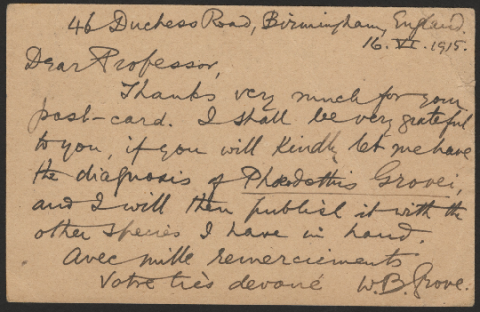 46 Duchess Road, Birmingham, England.
16. VI. 1915.
Dear Professor,
Thanks very much for your
post-card. I shall be very grateful
to you, if you will kindly let me have
the diagnosis of Phæodothis Grovei,
and I will then publish it with the
other species I have in hand.
Avec mille remerciements
Votre très devoué W. B. Grove.